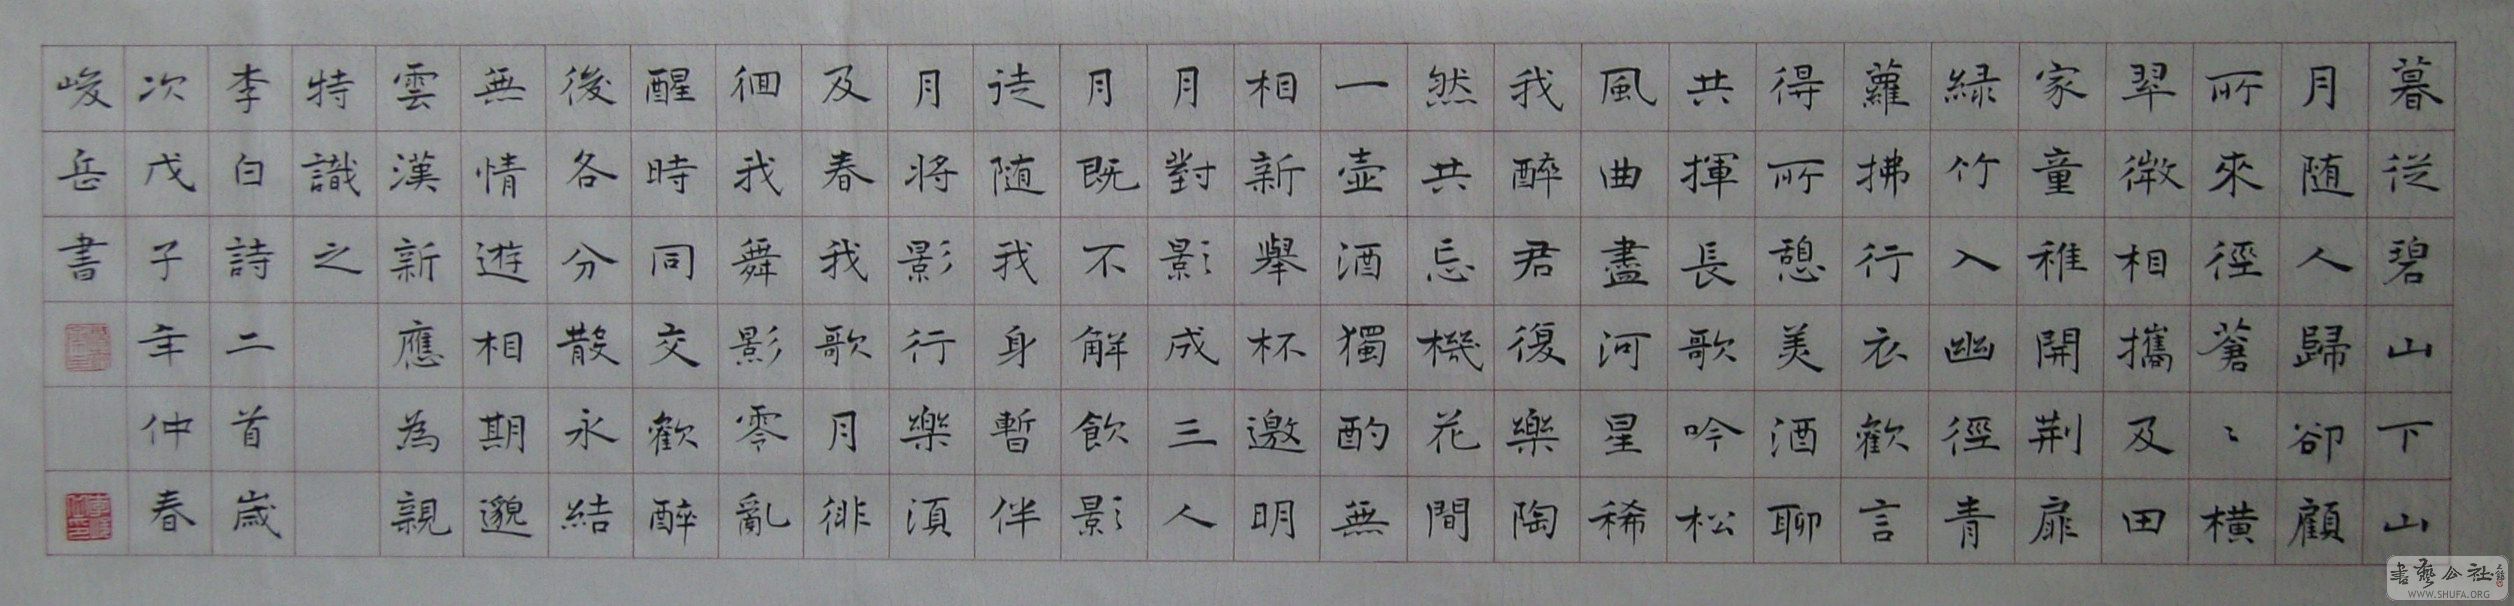 暮從碧山下山
月随人歸卻顧
所來徑蒼〻橫
翠微相攜及田
家童稚開荆扉
緑竹入幽徑青
蘿拂行衣歡言
得所憩美酒聊
共揮長歌吟松
風曲盡河星稀
我醉君復樂陶
然共忘機花間
一壺酒獨酌無
相新舉杯邀明
月對影成三人
月既不解飲影
徒随我身暫伴
月將影行樂須
及春我歌月徘
徊我舞影零亂
醒時同交歡醉
後各分散永結
無情遊相期邈
雲漢新應為親
特識之
李白詩二首歲
次戊子年仲春
峻岳書
書藝公社
WWW.SHUFA.ORG